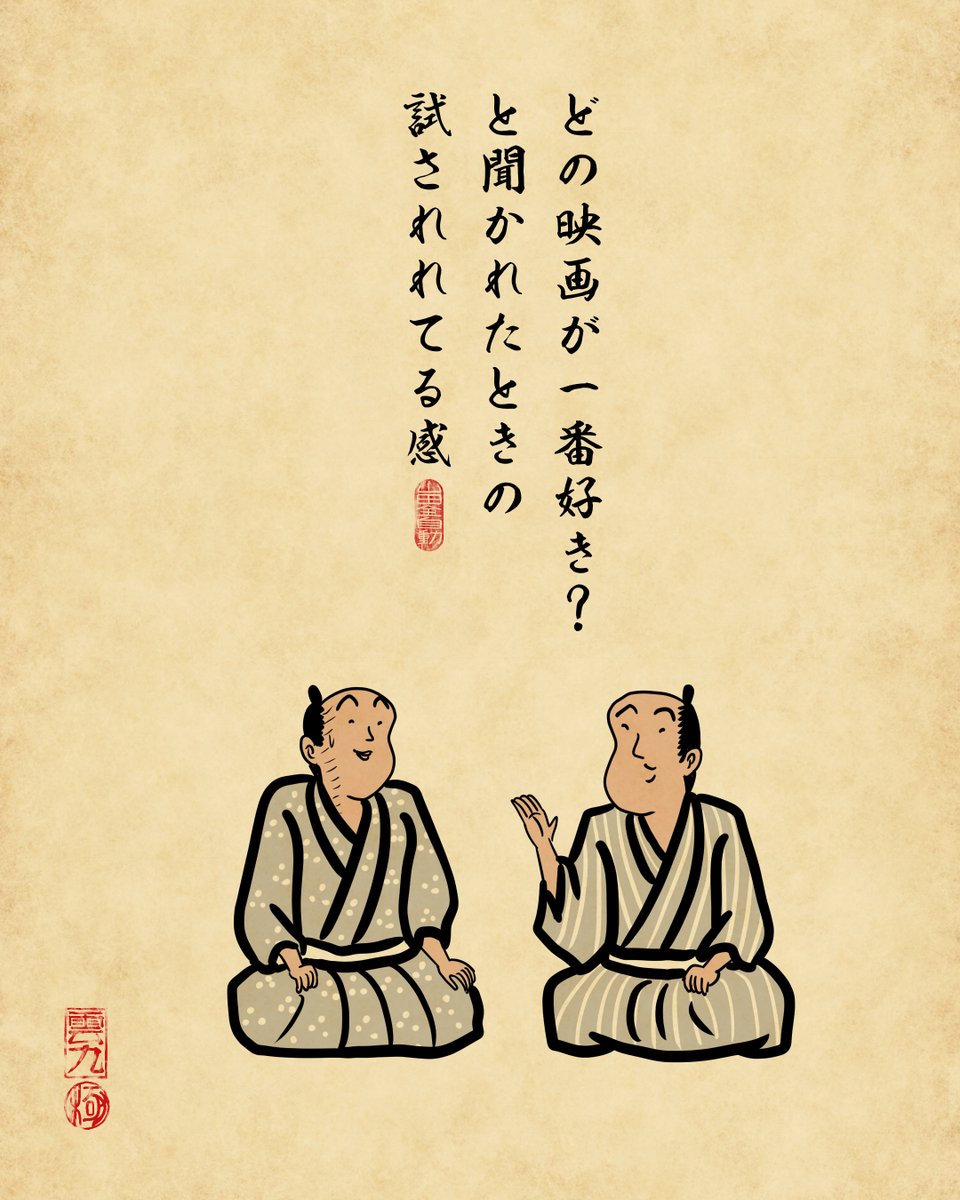 どの映画が一番好き？
と聞かれたときの
試されれてる感